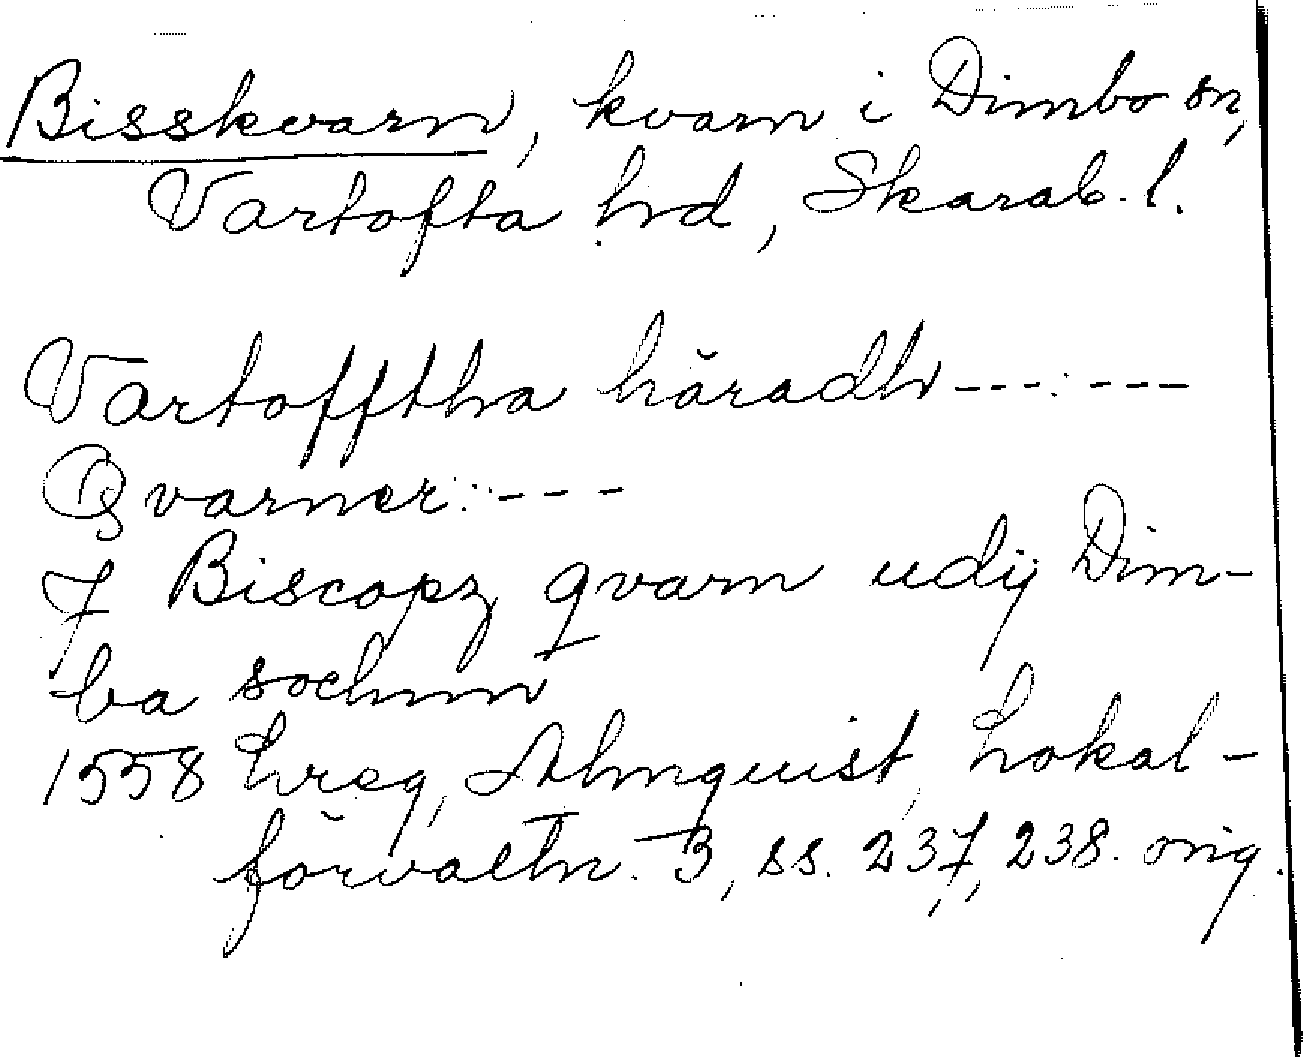 Bisskvarn, kvarn i Dimbo sn,
Vartofta hd, Skarab. l.
Vartofftha häradh ---:---
Qvarner: ---
J Biscopz qvarn udij Dim-
ba sochnn
1558 hreg, Almquist, Lokal-
förvaltn. 3, ss. 237, 238. orig.